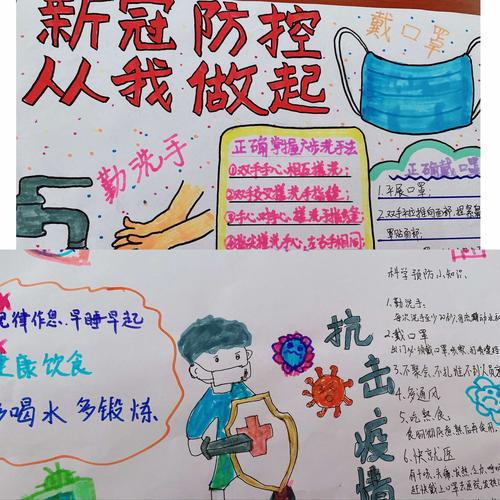 新冠防控
从我做起
戴口罩
勤洗手
正确掌握六步洗手法
①双手手心相互搓洗;
②双手交叉搓洗手指缝;
③手心对手心搓洗手指缝
④指尖搓洗手心,左右手相同;
正确戴口罩
1.平展口罩;
2.双手平拉推向面部,捏紧鼻
罩贴面部;
规律作息.早睡早起
健康饮食
多喝水 多锻炼.
抗击疫情
科学预防小知识:
1.勤洗手:
2.戴口罩
3.不聚会
4.多通风
5.吃熟食
6.快就医